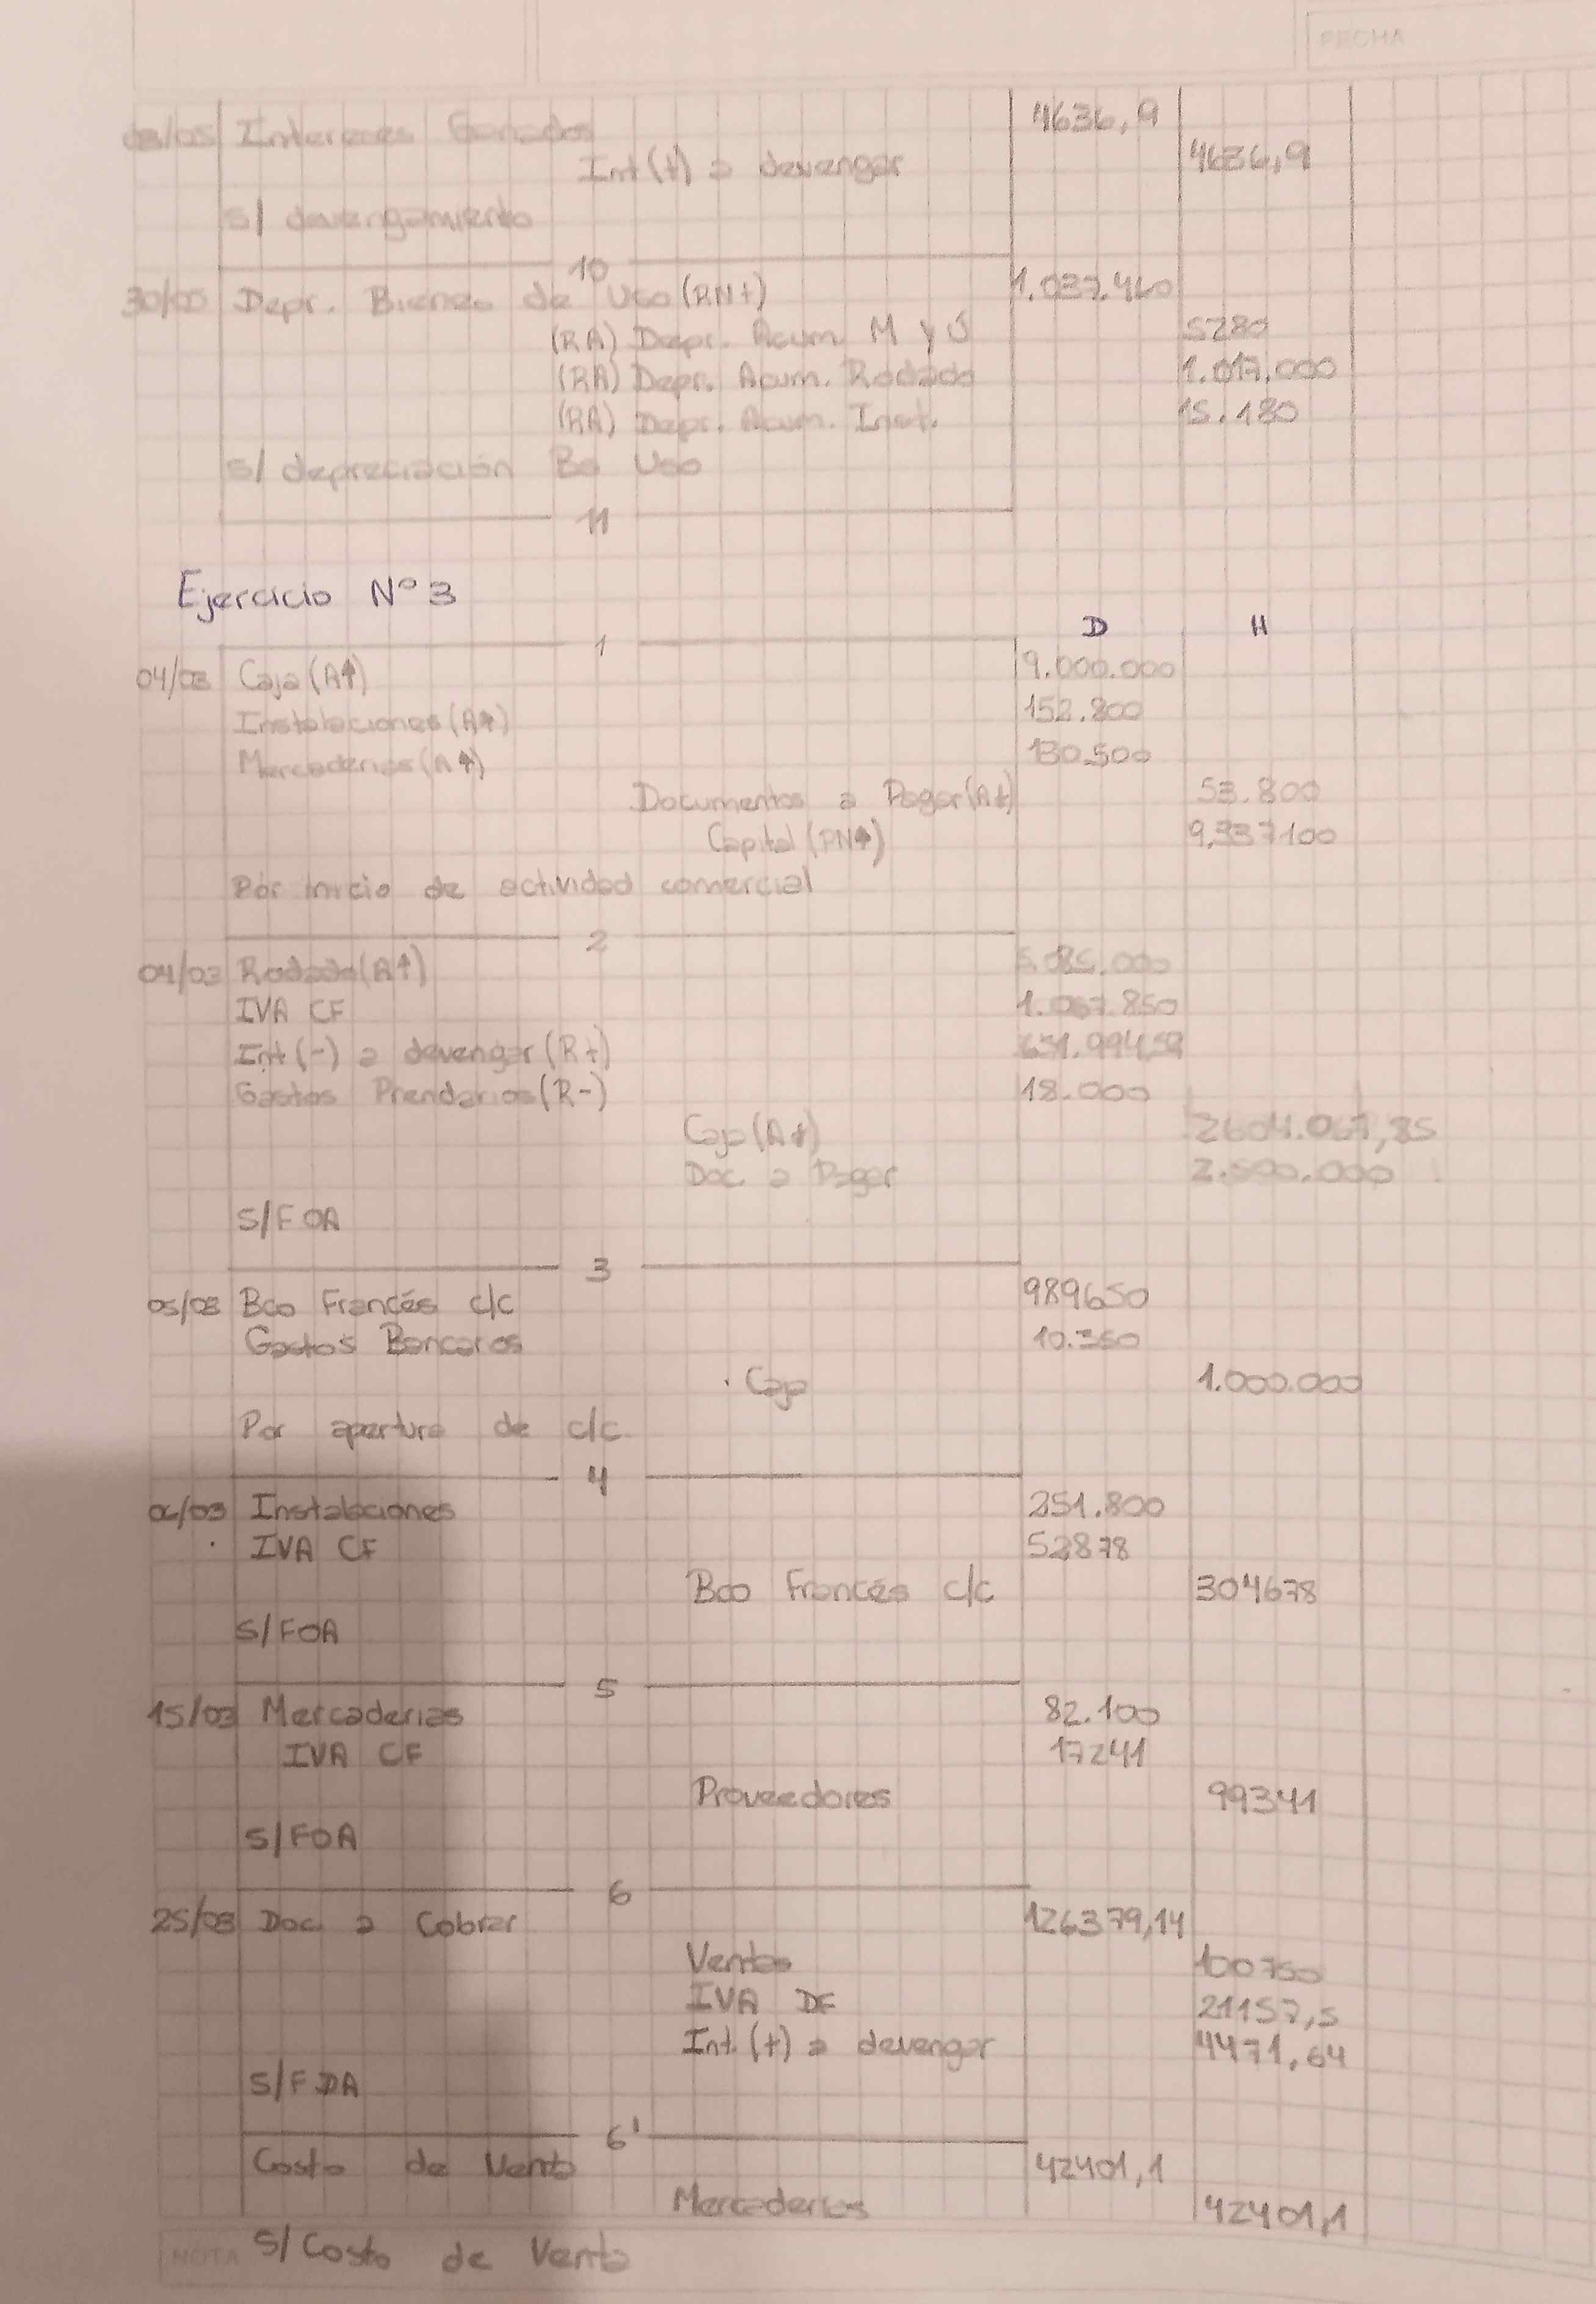 FECHA
03/05 Intereses Ganados 4636,9
Int (+) a devengar 4636,9
S/ devengamiento
10
30/05 Depr. Bienes de Uso (RN+) 1.037.460
(RA) Depr. Acum. M y Ú 5280
(RA) Depr. Acum. Rodado 1.017.000
(RA) Depr. Acum. Inst. 15.180
S/ depreciación Bs Uso
11
Ejercicio N° 3
D H
1
04/03 Caja (A↑) 9.000.000
Instalaciones (A↑) 152.800
Mercaderías (A↑) 130.500
Documentos a Pagar (A↓) 53.800
Capital (PN↑) 9.337100
Por inicio de actividad comercial
2
04/03 Rodado (A↑) 5.085.000
IVA CF 1.067.850
Int (-) a devengar (R+)
Gastos Prendarios (R-) 18.000
Caja (A↓) 2604.067,85
Doc. a Pagar
S/FOA
3
05/03 Bco Francés c/c 989650
Gastos Bancarios 10.350
Caja 1.000.000
Por apertura de c/c
4
06/03 Instalaciones 251.800
IVA CF 52878
Bco Francés c/c 304678
S/FOA
5
15/03 Mercaderias 82.100
IVA CF 17241
Proveedores 99341
S/FOA
6
25/03 Doc. a Cobrar 126379,14
Ventas 100750
IVA DF 21157,5
Int. (+) a devengar 4471,64
S/FDA
6'
Costo de Venta 42401,1
Mercaderias 42401,1
NOTA S/ Costo de Venta